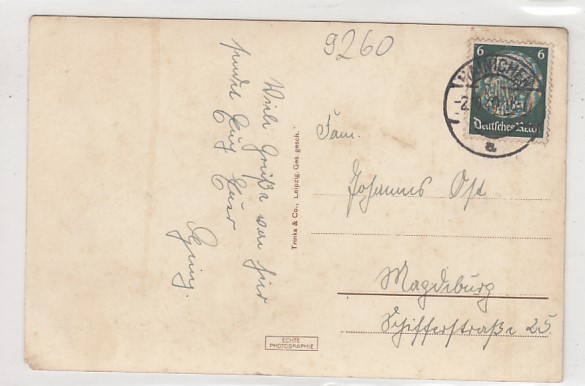 9260
6 6
Deutsches Reich
a
Viele Grüße von hier
sendet Euch Euer
Trenks & Co., Leipzig. Ges. gesch.
Fam.
Johannes Ost
Magdeburg
Schifferstraße 25
ECHTE
PHOTOGRAPHIE